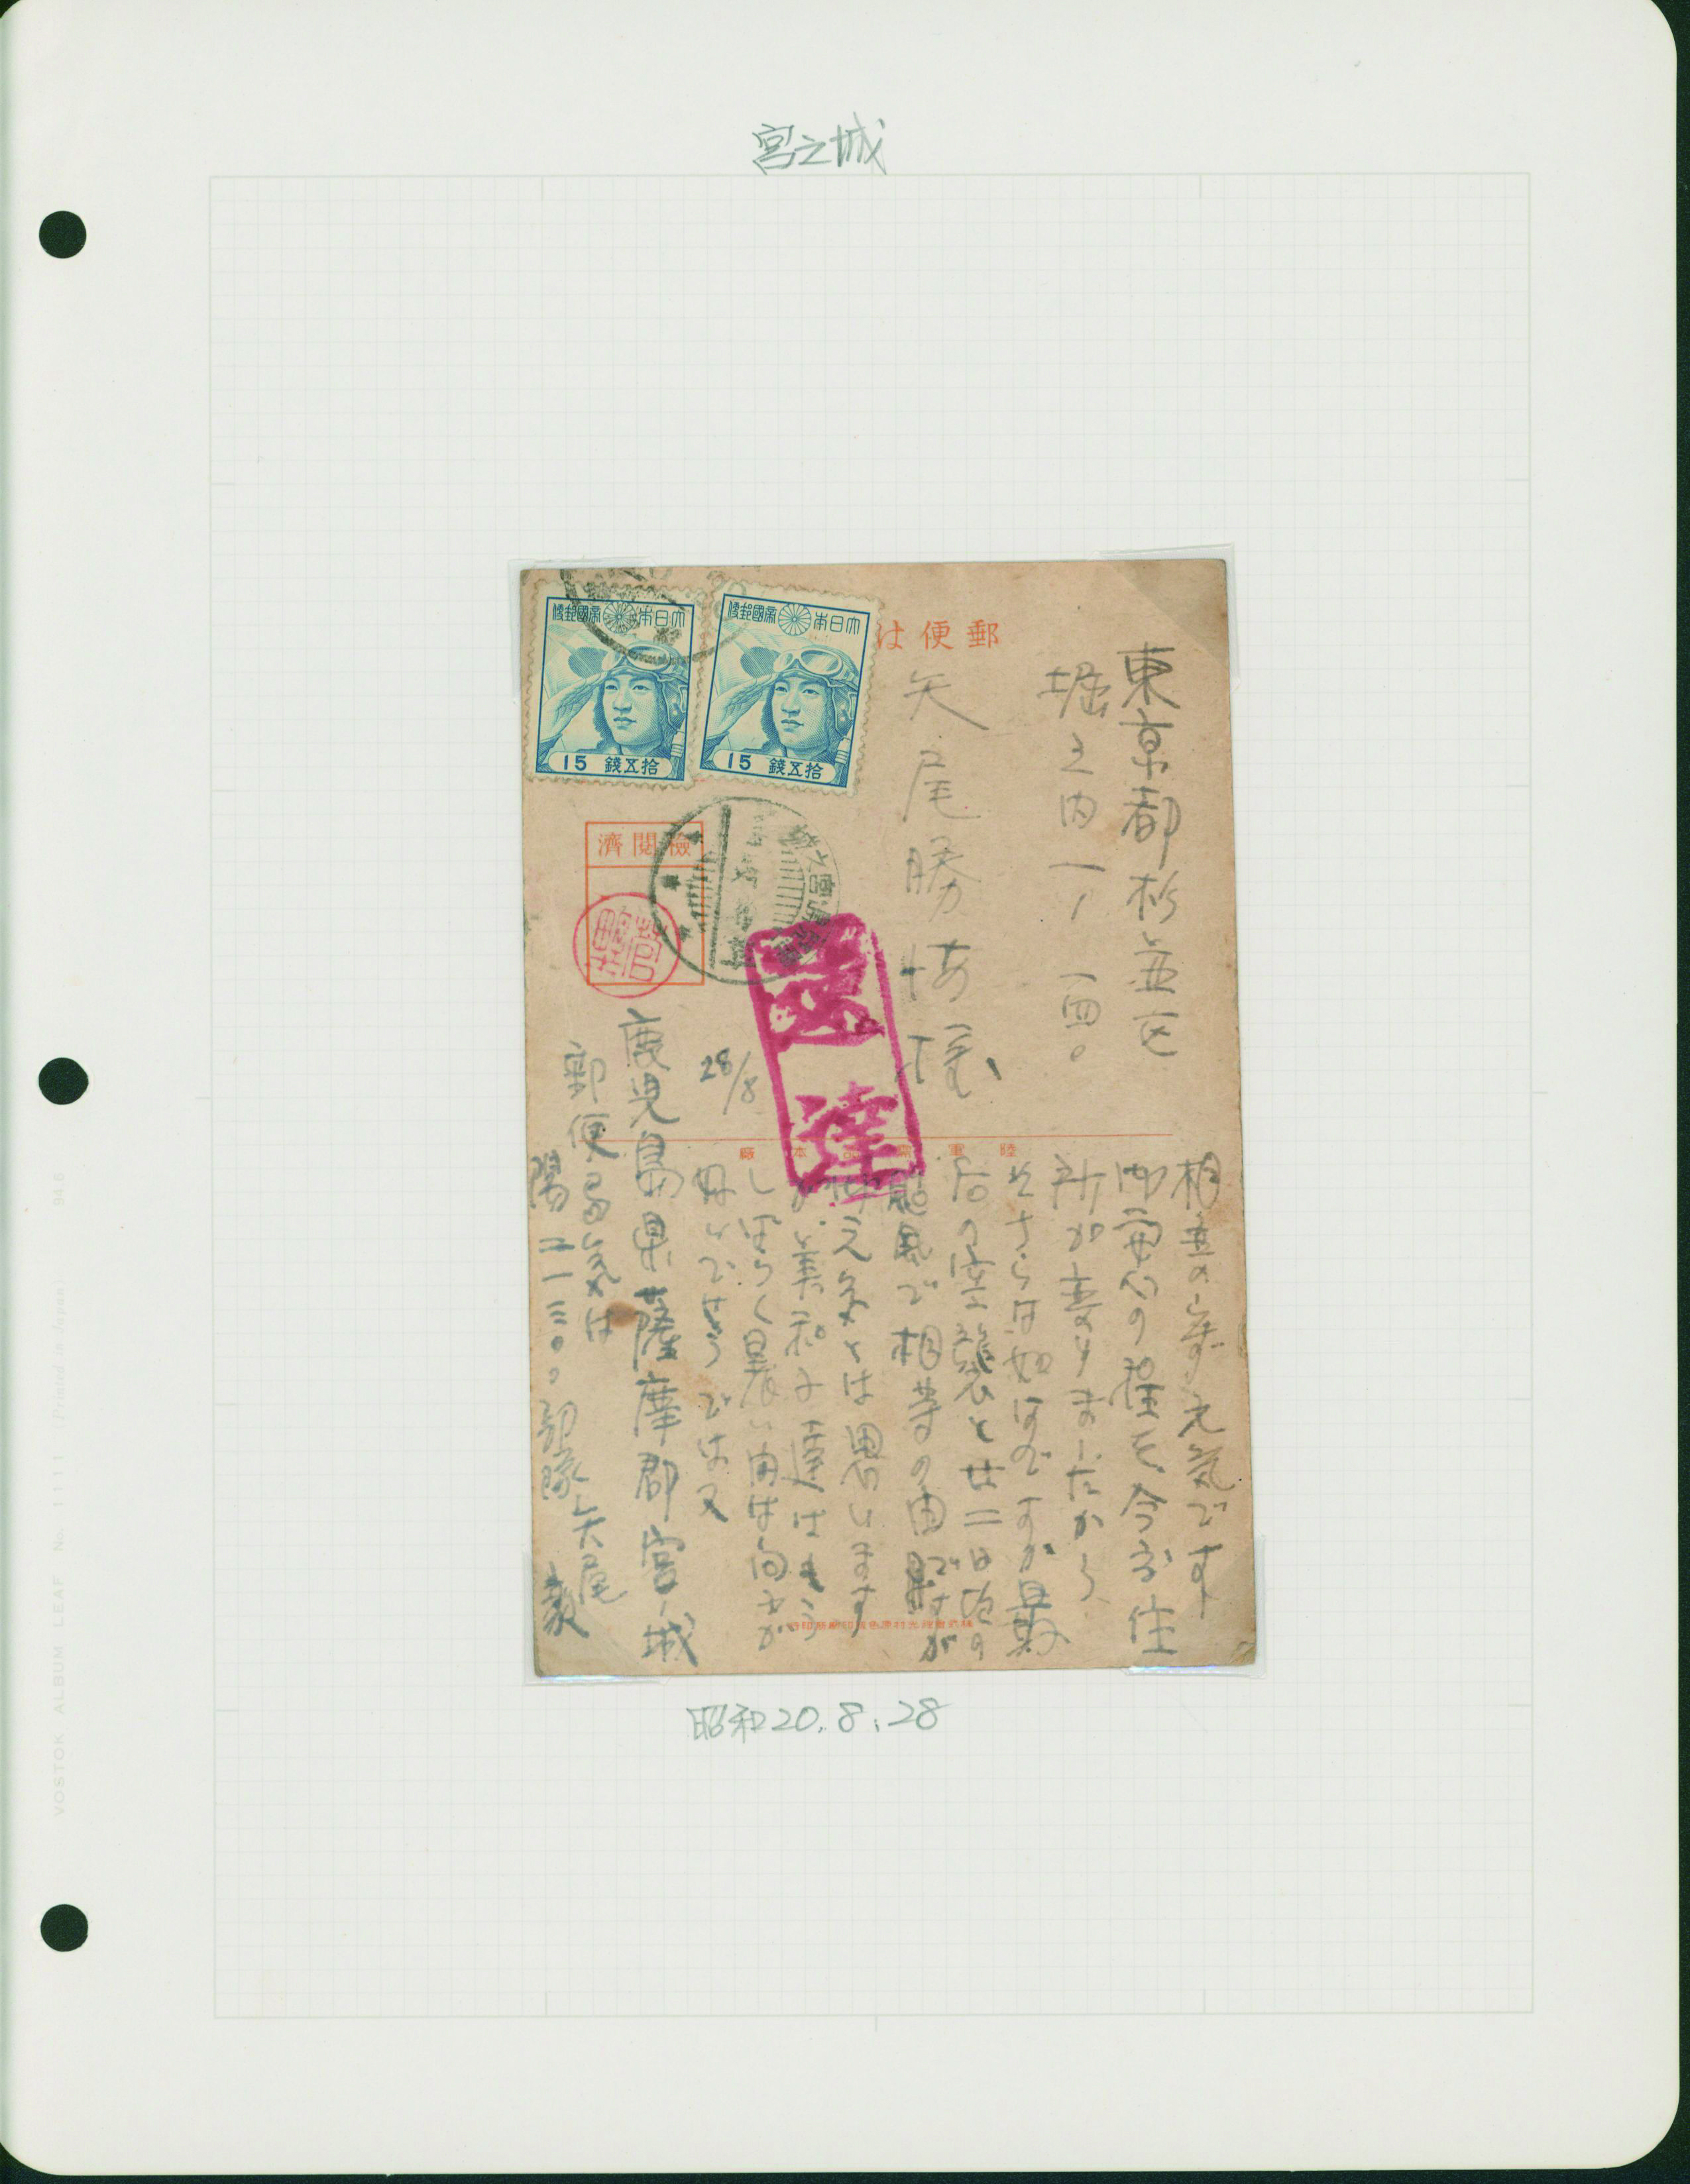 宮之城
郵便は
大日本帝國郵便
拾五錢 15
大日本帝國郵便
拾五錢 15
檢閲濟
速達
東京都杉並区
堀之内一ノ一四〇
矢尾勝
様
28/8
陸軍
本廠
相変らず元気です
御安心の程を 今度住
所が変りましたから
さらは如何ですか 最
后の空襲と廿二日頃の
颱風で相等の由ですが
元気とは思います
美和子達はもう
しばらく暑い内は向ふが
好いでせう では又
鹿児島県薩摩郡宮ノ城
郵便局気付
陽二一三〇〇部隊 矢尾
昭和20.8.28
VOSTOK ALBUM LEAF No. 1111 Printed in Japan